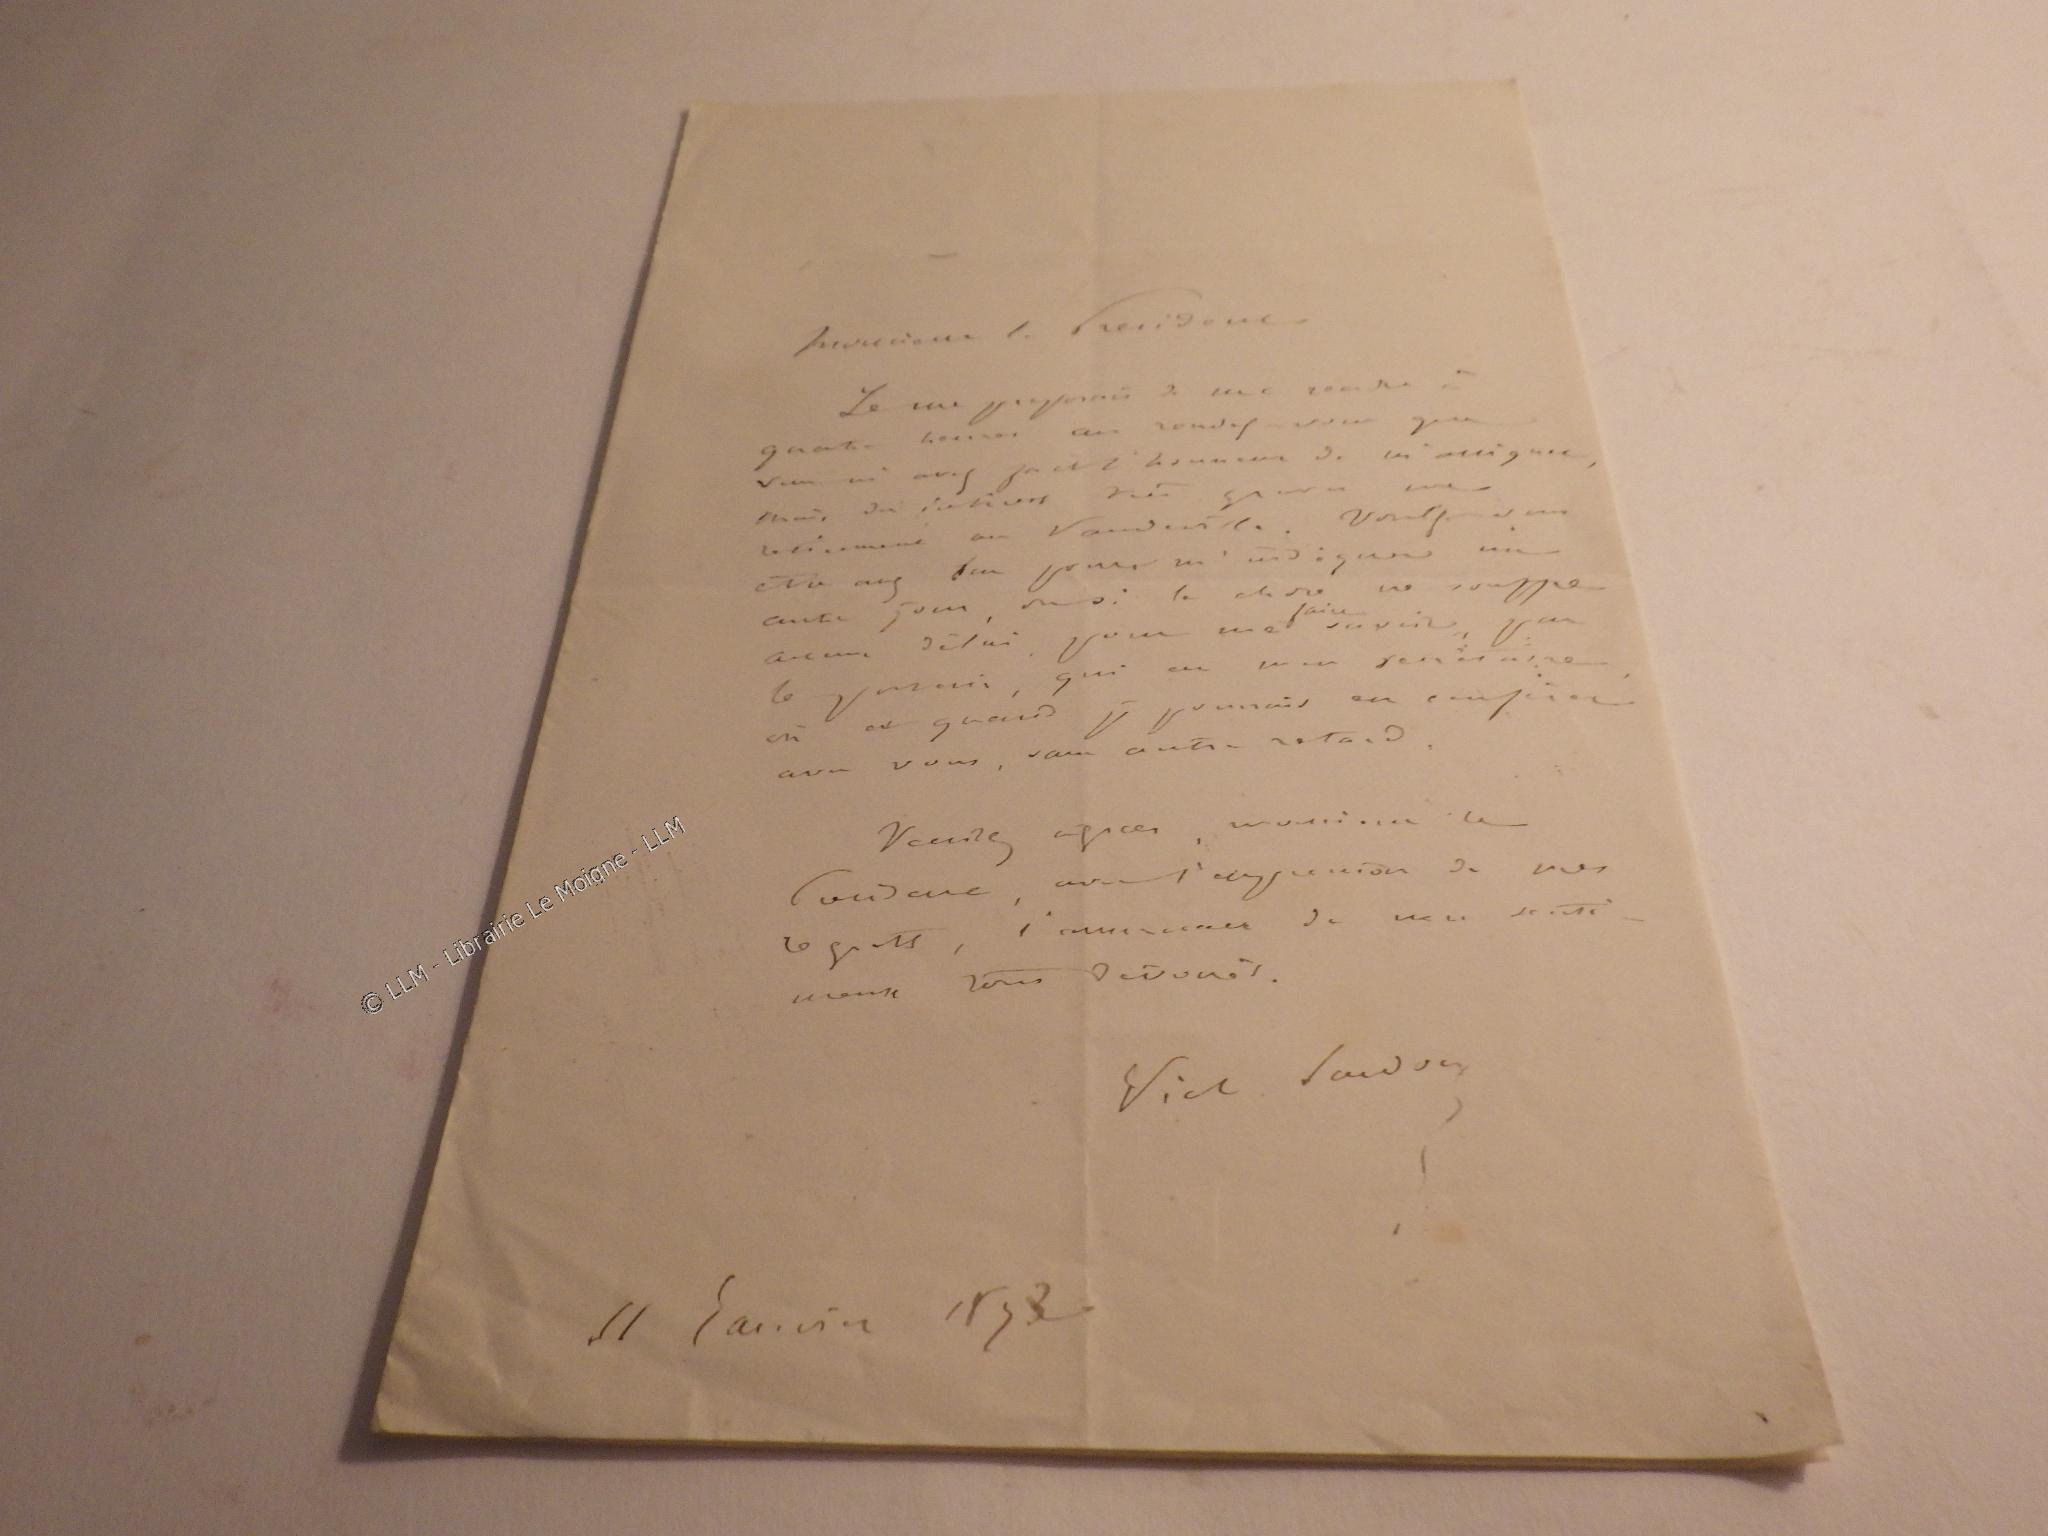 Monsieur le Président
Je me proposais de me rendre à
quatre heures au rendez-vous que
vous m'avez fait l'honneur de m'assigner,
mais des intérêts très graves me
retiennent au Vaudeville. Voulez-vous
être assez bon pour m'indiquer un
autre jour, ou si la chose ne souffre
aucun délai, pour me faire savoir, par
le porteur, qui est mon secrétaire,
où et quand je pourrais en conférer
avec vous, sans autre retard.
Veuillez agréer, monsieur le
Président, avec l'expression de mes
regrets, l'assurance de mes senti-
ments très dévoués.
Vict. Sardou
11 Janvier 1893
© LLM - Librairie Le Moigne - LLM